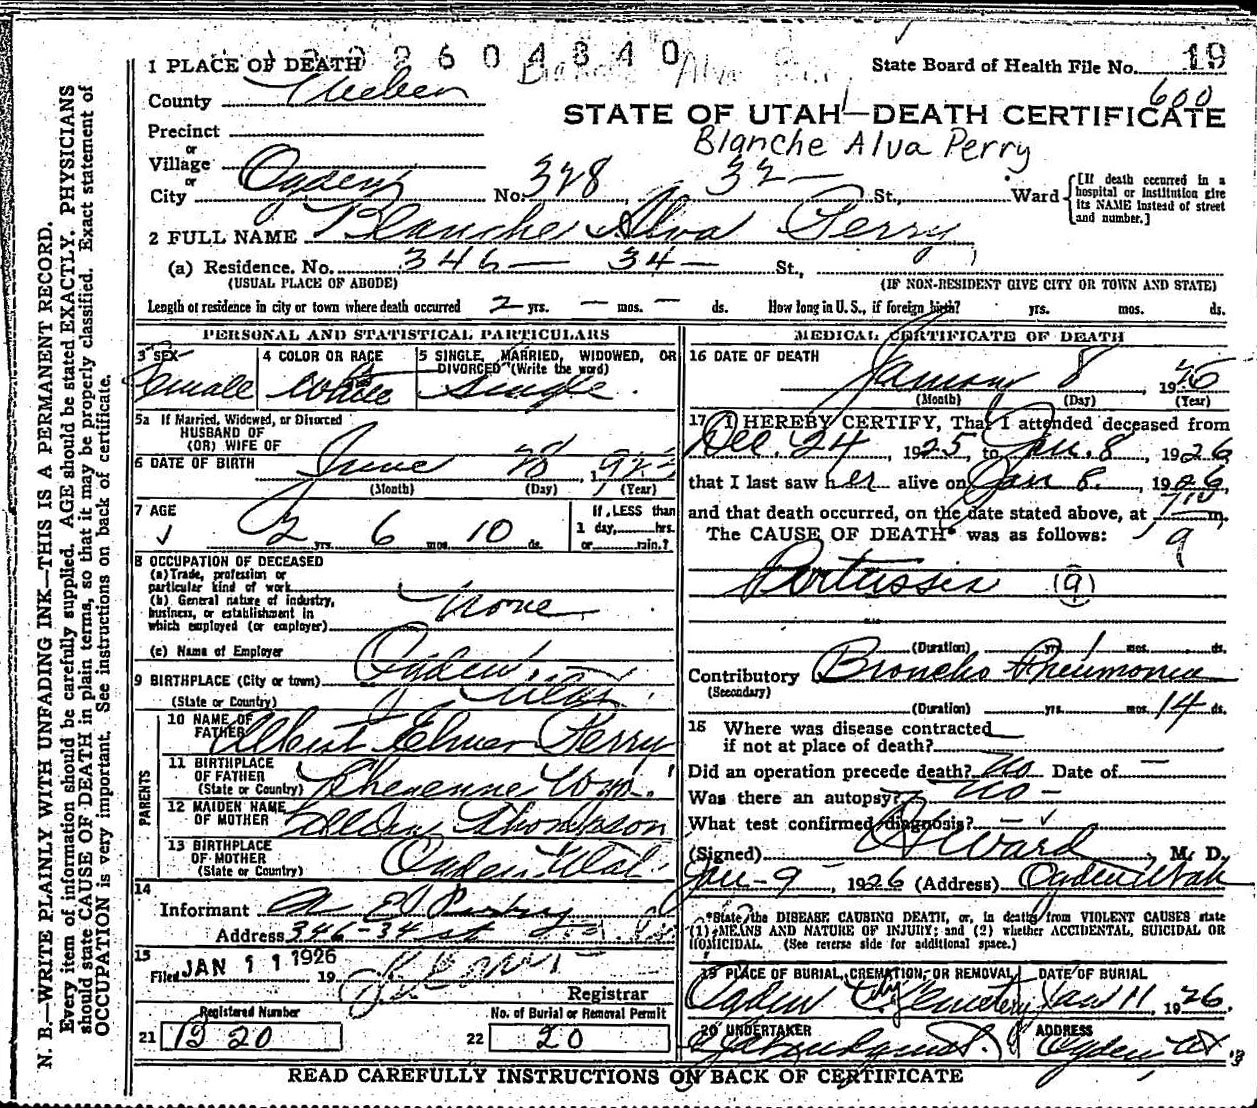 2604840
1 PLACE OF DEATH Blanche Alva State Board of Health File No. 19
County Weber 600
STATE OF UTAH—DEATH CERTIFICATE
Precinct
or
Blanche Alva Perry
Village
or
City Ogden No. 328 32 — St., Ward
[If death occurred in a hospital or institution give its NAME instead of street and number.]
2 FULL NAME Blanche Alva Perry
(a) Residence. No. 346 — 34 — St.,
(USUAL PLACE OF ABODE) (IF NON-RESIDENT GIVE CITY OR TOWN AND STATE)
Length of residence in city or town where death occurred 2 yrs. — mos. — ds. How long in U.S., if foreign birth? yrs. mos. ds.
PERSONAL AND STATISTICAL PARTICULARS
3 SEX 4 COLOR OR RACE 5 SINGLE, MARRIED, WIDOWED, OR
DIVORCED (Write the word)
Female White Single
5a If Married, Widowed, or Divorced
HUSBAND OF
(OR) WIFE OF
6 DATE OF BIRTH June 28, 1923
(Month) (Day) (Year)
7 AGE If LESS than
2 yrs. 6 mos. 10 ds. 1 day, hrs.
or min.?
8 OCCUPATION OF DECEASED
(a) Trade, profession or
particular kind of work
(b) General nature of industry,
business, or establishment in
which employed (or employer) None
(c) Name of Employer
9 BIRTHPLACE (City or town) Ogden
(State or Country) Utah
PARENTS
10 NAME OF
FATHER Albert Elmer Perry
11 BIRTHPLACE
OF FATHER
(State or Country) Cheyenne Wyo.
12 MAIDEN NAME
OF MOTHER Thompson
13 BIRTHPLACE
OF MOTHER
(State or Country) Ogden Utah
14
Informant A E Perry
Address 346-34 st
15
Filed JAN 11 1926 19
Registrar
Registered Number No. of Burial or Removal Permit
21 1920 22 20
MEDICAL CERTIFICATE OF DEATH
16 DATE OF DEATH
January 8, 1926
(Month) (Day) (Year)
17 I HEREBY CERTIFY, That I attended deceased from
Dec. 24, 1925, to Jan. 8, 1926,
that I last saw her alive on Jan 8, 1926,
and that death occurred, on the date stated above, at m.
The CAUSE OF DEATH* was as follows: 9
Pertussis (9)
(Duration) yrs. 1 mos. ds.
Contributory Broncho Pneumonia
(Secondary)
(Duration) yrs. mos. 14 ds.
18 Where was disease contracted
if not at place of death?
Did an operation precede death? No Date of —
Was there an autopsy? No —
What test confirmed diagnosis? —
(Signed) Ward, M. D.
Jan-9, 1926 (Address) Ogden Utah
*State the DISEASE CAUSING DEATH, or, in deaths from VIOLENT CAUSES state
(1) MEANS AND NATURE OF INJURY; and (2) whether ACCIDENTAL, SUICIDAL OR
HOMICIDAL. (See reverse side for additional space.)
19 PLACE OF BURIAL, CREMATION, OR REMOVAL DATE OF BURIAL
Ogden City Cemetery Jan 11, 1926.
20 UNDERTAKER ADDRESS
Ogden, Ut
READ CAREFULLY INSTRUCTIONS ON BACK OF CERTIFICATE
N. B.—WRITE PLAINLY WITH UNFADING INK—THIS IS A PERMANENT RECORD.
Every item of information should be carefully supplied. AGE should be stated EXACTLY. PHYSICIANS
should state CAUSE OF DEATH in plain terms, so that it may be properly classified. Exact statement of
OCCUPATION is very important. See instructions on back of certificate.